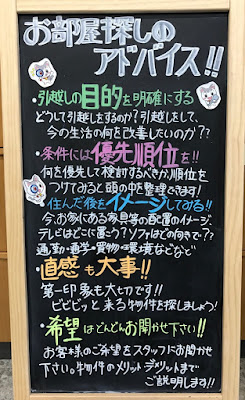 お部屋探しの
アドバイス!!
・引越しの目的を明確にする
どうして引越しをするのか?引越しをして、
今の生活の何を改善したいのか??
・条件には優先順位を!!
何を優先して検討するべきか、順位を
つけてみると頭の中を整理できます!
住んだ後をイメージしてみる!!
今、お家にある家具等の配置のイメージ
テレビはどこに置こう?ソファはどの向きで??
通勤・通学・買物・環境などなど
・直感も大事!!
第一印象も大切です!
ビビビッと来る物件を探しましょう!
・希望はどんどんお聞かせ下さい!!
お客様のご希望をスタッフにお聞かせ
下さい。物件のメリットデメリットまで
ご説明します!!